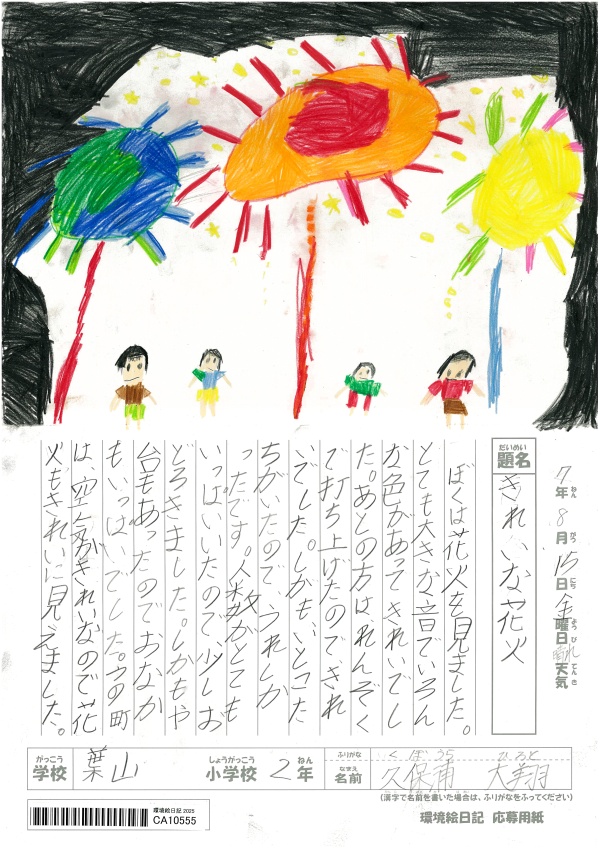 7年8月15日金曜日晴れ天気
ねん がつ にち ようび てんき
だいめい
題名 きれいな花火
ぼくは花火を見ました。
とても大きな音でいろん
な色があってきれいでし
た。あとの方は、れんぞく
で打ち上げたのできれ
いでした。しかも、いとこた
ちがいたので、うれしか
ったです。人数がとても
いっぱいいたので、少しお
どろきました。しかもや
台もあったのでおなか
もいっぱいでした。うの町
は、空気がきれいなので花
火もきれいに見えました。
がっこう しょうがっこう ねん ふりがな くぼうら ひろと
学校 葉山 小学校 2年 なまえ 名前 久保浦 大翔
(漢字で名前を書いた場合は、ふりがなをふってください)
環境絵日記 2025
CA10555
環境絵日記 応募用紙